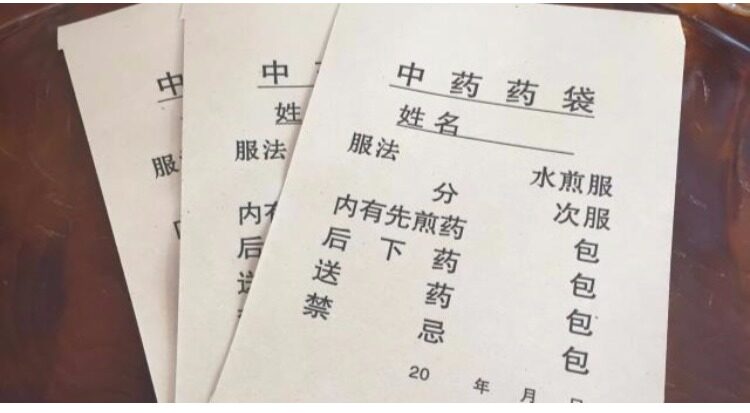 中
服
中
姓
服法
内有
后
中药药袋
姓名
服法 水煎服
分 次服
内有先煎药 包
后下药 包
送药 包
禁忌 包
20 年 月